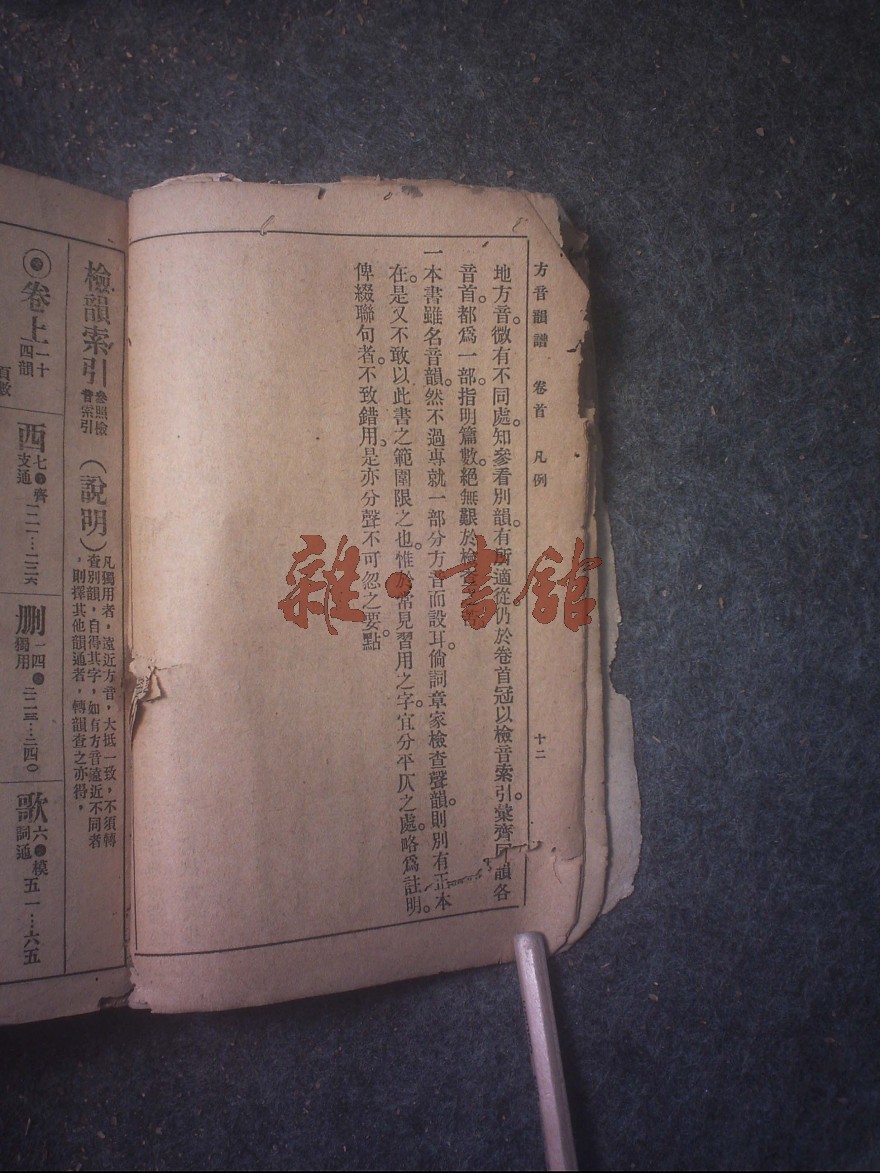 方音韻譜 卷首 凡例 十二
地方音。微有不同處。知參看別韻。有所適從。仍於卷首冠以檢音索引。彙齊 韻各
音首。都爲一部。指明篇數。絕無艱於檢查
一本書雖名音韻。然不過專就一部分方音而設耳。倘詞章家檢查聲韻。則別有正本
在。是又不敢以此書之範圍限之也。惟於常見習用之字。宜分平仄之處。略爲註明。
俾綴聯句者。不致錯用。是亦分聲不可忽之要點。
檢韻索引 參照檢音索引 (說明) 凡獨用者，遠近方音，大抵一致，不須轉查別韻，自得其字，如有方音遠近不同者，則擇其他韻通者，轉韻查之亦得，
卷上 一十四韻 頁數
西 七 齊 支通 一二一…一三六
刪 一四 獨用 二二三…二四〇
歌 六 模 詞通 五一…六五
雜·書館